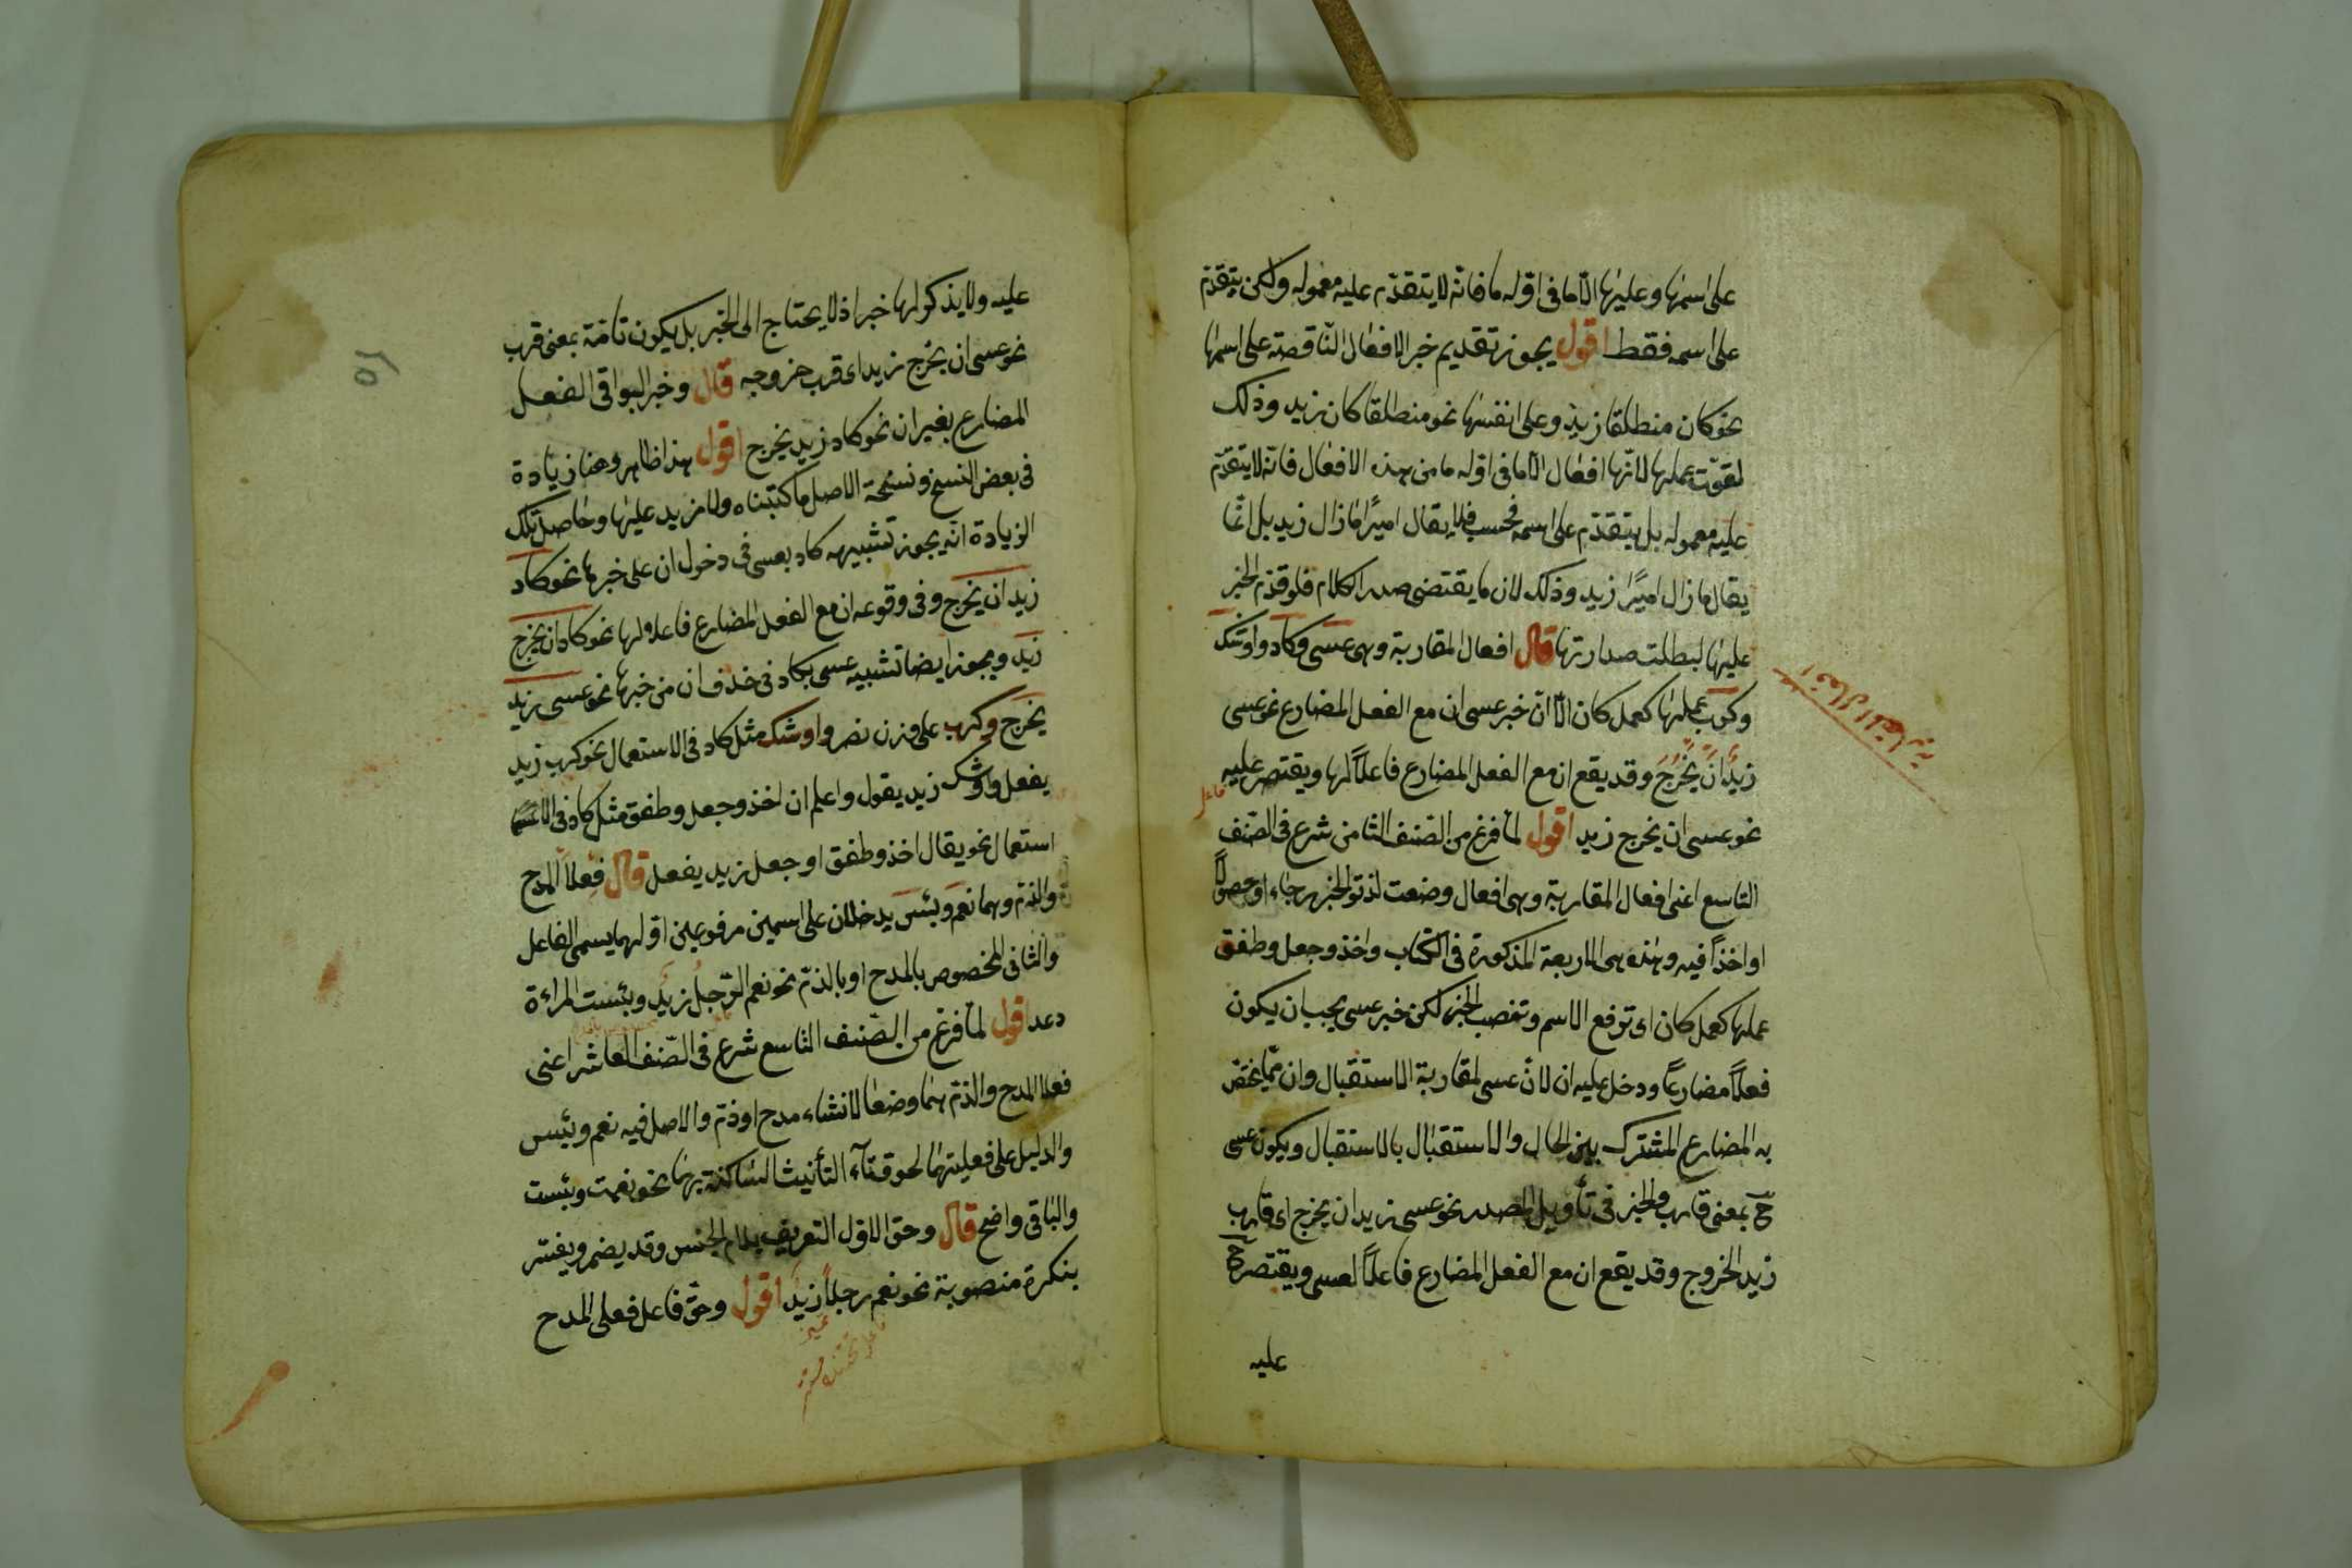 على اسمها وعليها الا ما فى اوله ما فانه لا يتقدم عليه معموله ولكن يتقدم
على اسمه فقط اقول يجوز تقديم خبر الافعال الناقصة على اسمها
نحو كان منطلقا زيد وعلى انفسها نحو منطلقا كان زيد وذلك
لقوت عملها لانها افعال الا ما فى اوله ما من هذه الافعال فانه لا يتقدم
عليه معموله بل يتقدم على اسمه فحسب فلا يقال اميرًا ما زال زيد بل انما
يقال ما زال اميرًا زيد وذلك لان ما يقتضى صدر الكلام فلو قدم الخبر
عليها لبطلت صدارتها قال افعال المقاربة وهى عسى وكاد واوشك
وكرب عملها كعمل كان الا ان خبر عسى ان مع الفعل المضارع نحو عسى
زيد ان يخرج وقد يقع ان مع الفعل المضارع فاعلاً لها ويقتصر عليه
نحو عسى ان يخرج زيد اقول لما فرغ من الصنف الثامن شرع فى الصنف
التاسع اعنى افعال المقاربة وهى افعال وضعت لدنو الخبر رجاء او حصولاً
او اخذاً فيه وهذه هى الاربعة المذكورة فى الكتاب واخذ وجعل وطفق
عملها كعمل كان اى ترفع الاسم وتنصب الخبر لكن خبر عسى يجب ان يكون
فعلاً مضارعًا ودخل عليه ان لان عسى لمقاربة الاستقبال وان مما يختص
به المضارع المشترك بين الحال والاستقبال بالاستقبال ويكون عسى
ح بمعنى قارب والخبر فى تأويل المصدر نحو عسى زيد ان يخرج اى قارب
زيد الخروج وقد يقع ان مع الفعل المضارع فاعلاً لعسى ويقتصر ح
عليه
افعال المقاربة
فاعل
عليه ولا يذكر لها خبر اذ لا يحتاج الى الخبر بل يكون تامة بمعنى قرب
نحو عسى ان يخرج زيد اى قرب خروجه قال وخبر البواقى الفعل
المضارع بغير ان نحو كاد زيد يخرج اقول هذا ظاهر وهنا زيادة
فى بعض النسخ ونسخة الاصل ما كتبناه ولا مزيد عليها وحاصل تلك
الزيادة انه يجوز تشبيه كاد بعسى فى دخول ان على خبرها نحو كاد
زيد ان يخرج وفى وقوعه ان مع الفعل المضارع فاعلا لها نحو كاد ان يخرج
زيد ويجوز ايضا تشبيه عسى بكاد فى حذف ان من خبرها نحو عسى زيد
يخرج وكرب على وزن نصر واوشك مثل كاد فى الاستعمال نحو كرب زيد
يفعل واوشك زيد يقول واعلم ان اخذ وجعل وطفق مثل كاد فى
استعمال نحو يقال اخذ وطفق او جعل زيد يفعل قال فعلا المدح
والذم وهما نعم وبئس يدخلان على اسمين مرفوعين اولهما يسمى الفاعل
والثانى المخصوص بالمدح او بالذم نحو نعم الرجل زيد وبئست المراءة
دعد اقول لما فرغ من الصنف التاسع شرع فى الصنف العاشر اعنى
فعلا المدح والذم هما وضعا لانشاء مدح او ذم والاصل فيه نعم وبئس
والدليل على فعليتهما لحوق تآء التأنيث الساكنة بهما نحو نعمت وبئست
والباقى واضح قال وحق الاول التعريف بلام الجنس وقد يضمر ويفسر
بنكرة منصوبة نحو نعم رجلاً زيد اقول وحق فاعل فعلى المدح